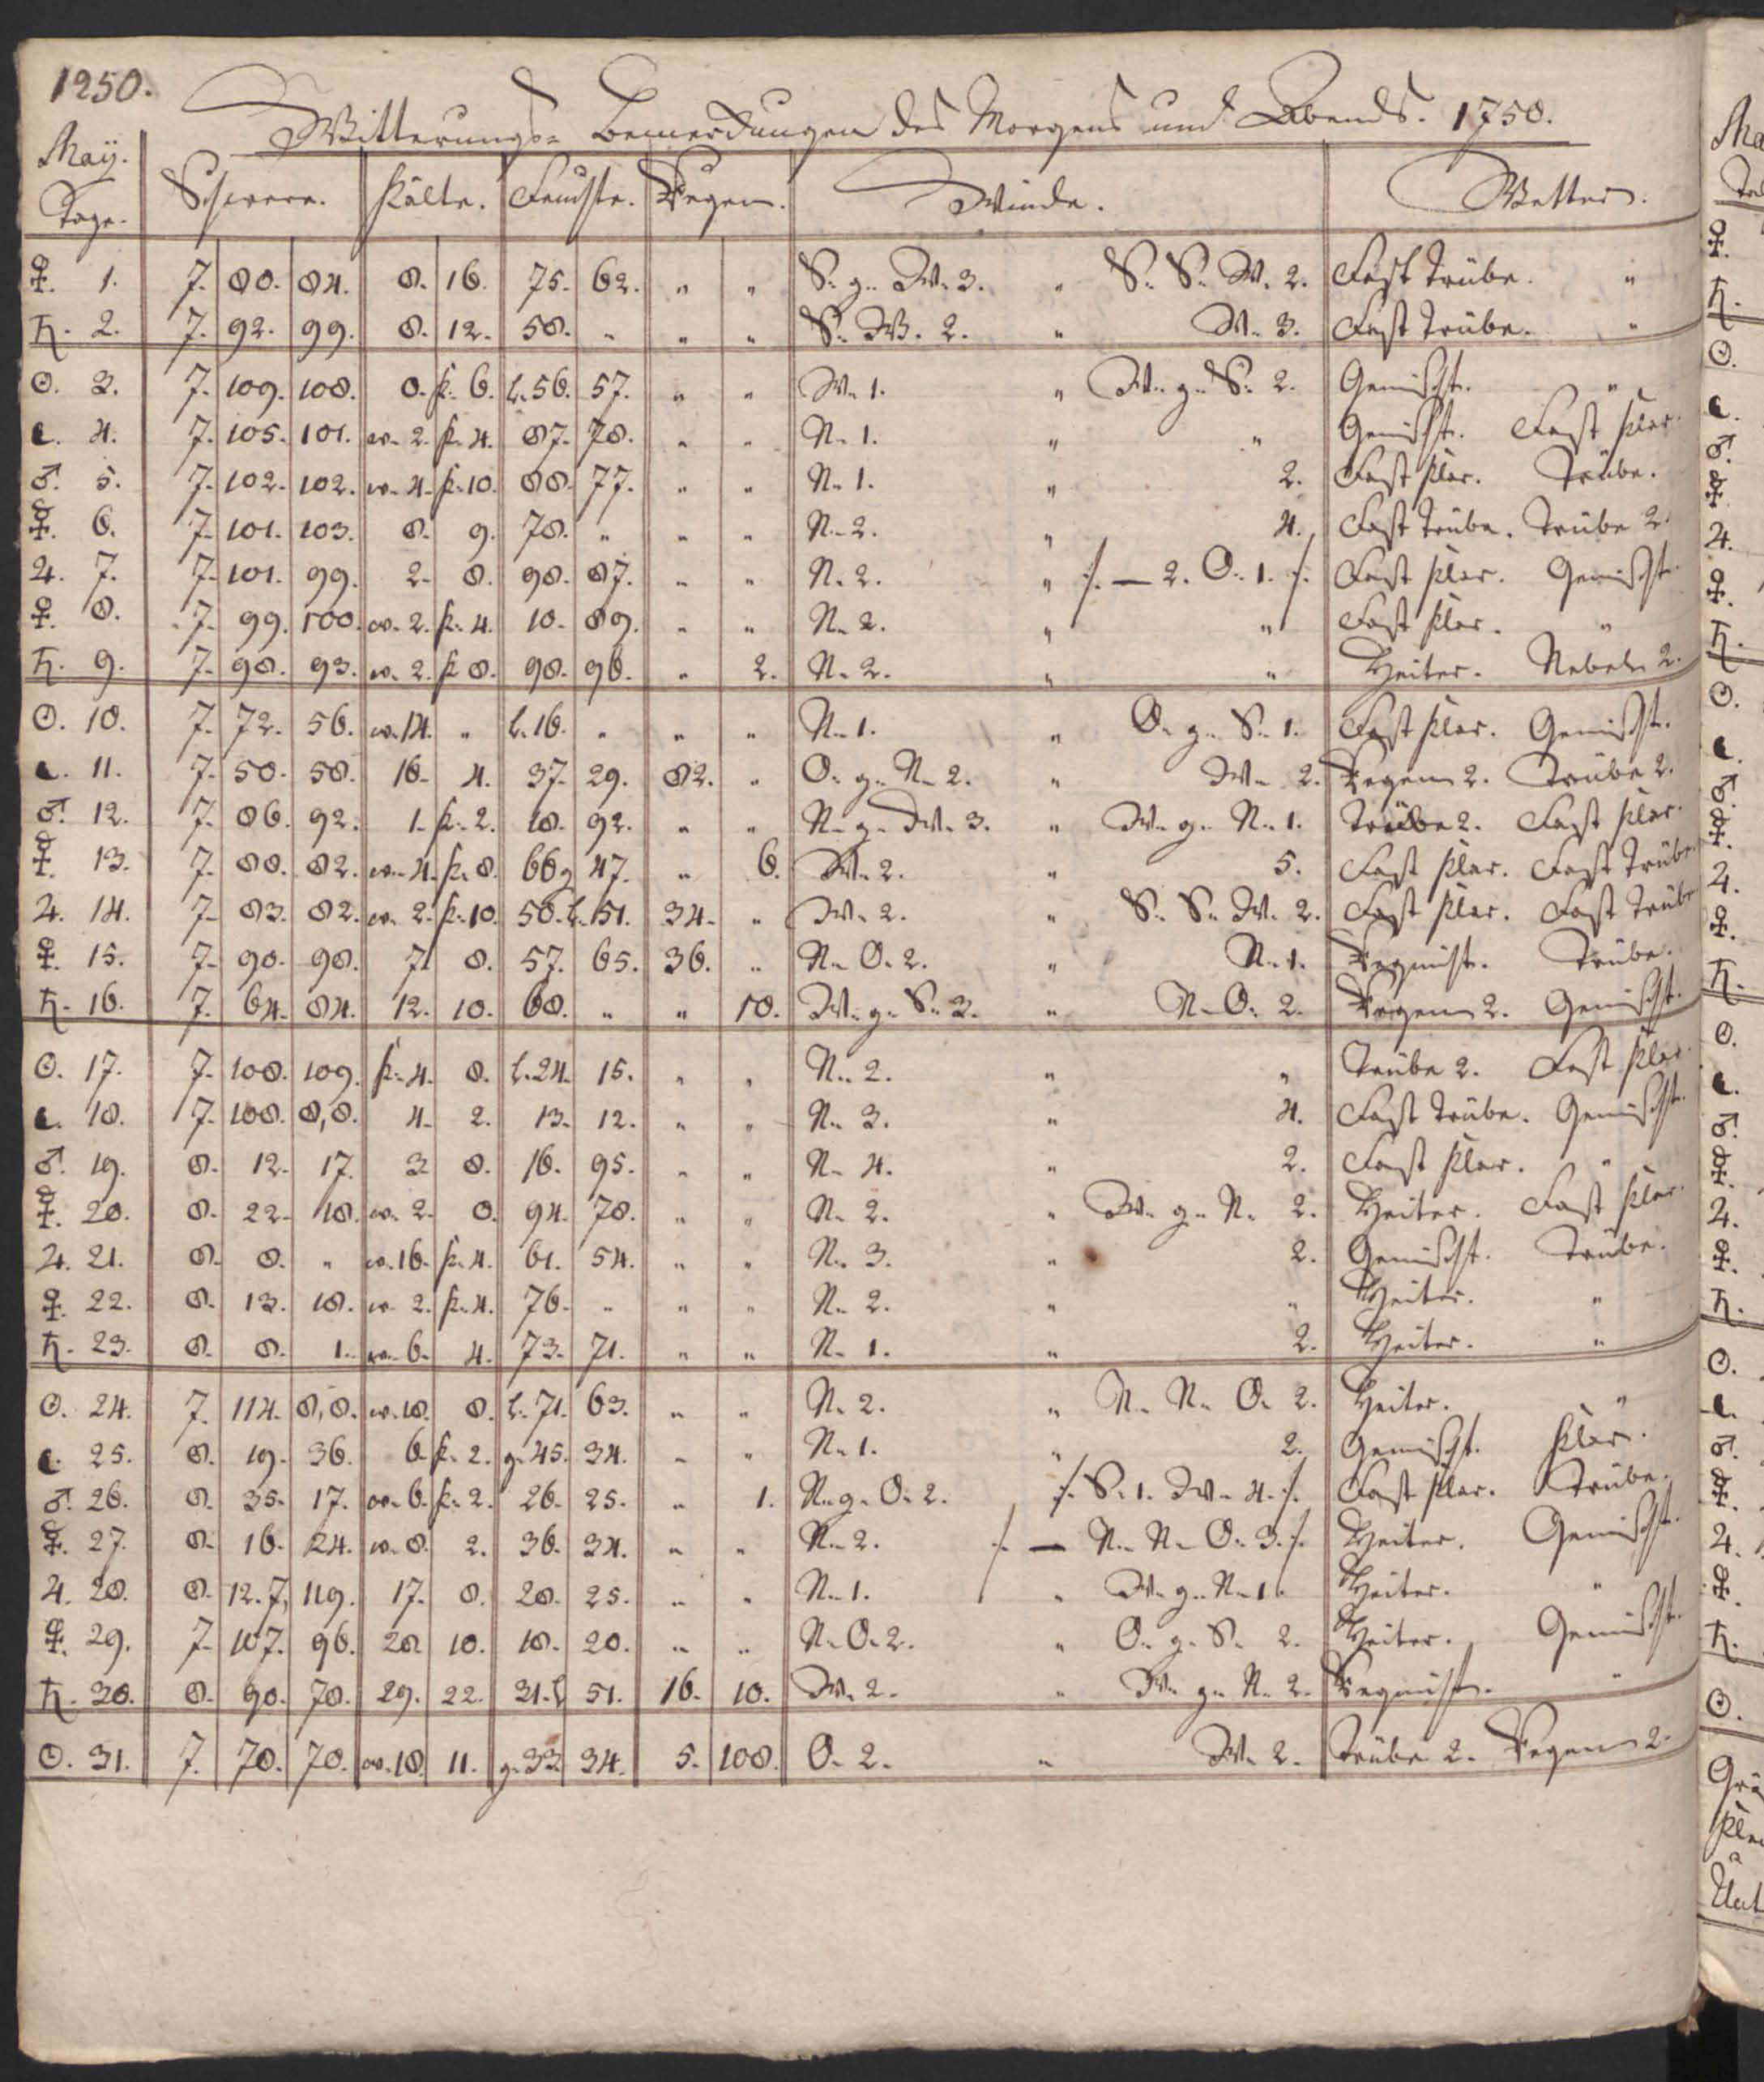 1250.
Witterungs= Bemerckungen des Morgens und Abends. 1750.
Maÿ.
Tage. Schwere. Kälte. Feuchte. Regen. Winde. Wetter.
♀. 1. 7. 80. 84. 8. 16. 75. 62. „ „ S. g. W. 3. „ S. S. W. 2. Fast Trübe. „
♄. 2. 7. 92. 99. 8. 12. 58. „ „ „ S. W. 2. „ W. 3. Fast Trübe. „
☉. 3. 7. 109. 108. 0. k. 6. L. 56. 57. „ „ W. 1. „ W. g. S. 2. Gemischt. „
☾. 4. 7. 105. 101. w. 2. k. 4. 87. 78. „ „ N. 1. „ „ Gemischt. Fast klar.
♂. 5. 7. 102. 102. w. 4. k. 10. 88. 77. „ „ N. 1. „ 2. Fast klar. Trübe.
☿. 6. 7. 101. 103. 8. 9. 78. „ „ „ N. 2. „ 4. Fast Trübe. Trübe 2.
♃. 7. 7. 101. 99. 2. 8. 98. 87. „ „ N. 2. „ /. — 2. O. 1. /. Fast klar. Gemischt.
♀. 8. 7. 99. 100. w. 2. k. 4. 10. 89. „ „ N. 2. „ „ Fast klar. „
♄. 9. 7. 98. 93. w. 2. k 8. 98. 96. „ 2. N. 2. „ „ Heiter. Nebel 2.
☉. 10. 7. 72. 56. w. 14. „ L. 16. „ „ „ N. 1. „ O. g. S. 1. Fast klar. Gemischt.
☾. 11. 7. 50. 58. 16. 4. 37. 29. 82. „ O. g. N. 2. „ W. 2. Regen 2. Trübe 2.
♂. 12. 7. 86. 92. 1. k. 2. 18. 92. „ „ N. g. W. 3. „ W. g. N. 1. Trübe 2. Fast klar.
☿. 13. 7. 88. 82. w. 4. k. 8. 66 g 47. „ 6. W. 2. „ 5. Fast klar. Fast Trübe.
♃. 14. 7. 83. 82. w. 2. k. 10. 50. L. 51. 34. „ W. 2. „ S. S. W. 2. Fast klar. Fast Trübe
♀. 15. 7. 90. 98. 7. 8. 57. 65. 36. „ N. O. 2. „ N. 1. Regnicht. Trübe.
♄. 16. 7. 64. 84. 12. 10. 68. „ „ 10. W. g. S. 3. „ N. O. 2. Regen 2. Gemischt.
☉. 17. 7. 108. 109. k. 4. 8. L. 24. 15. „ „ N. 2. „ „ Trübe 2. Fast klar.
☾. 18. 7. 108. 8,8. 4. 2. 13. 12. „ „ N. 3. „ 4. Fast Trübe. Gemischt.
♂. 19. 8. 12. 17. 3 8. 16. 95. „ „ N. 4. „ 2. Fast klar. „
☿. 20. 8. 22. 18. w. 2. 0. 94. 78. „ „ N. 2. „ W. g. N. 2. Heiter. Fast klar.
♃. 21. 8. 8. „ w. 16. k. 4. 61. 54. „ „ N. 3. „ 2. Gemischt. Trübe.
♀. 22. 8. 13. 18. w. 2. k. 4. 76. „ „ „ N. 2. „ „ Heiter. „
♄. 23. 8. 8. 1. w. 6. 4. 73. 71. „ „ N. 1. „ 2. Heiter. „
☉. 24. 7. 114. 8,8. w. 18. 8. L. 71. 63. „ „ N. 2. „ N. N. O. 2. Heiter. „
☾. 25. 8. 19. 36. 6. k. 2. g. 45. 34. „ „ N. 1. „ 2. Gemischt. klar.
♂. 26. 8. 35. 17. w. 6. k. 2. 26. 25. „ 1. N. g. O. 2. /. S. 1. W. 4. /. Fast klar. Trübe.
☿. 27. 8. 16. 24. w. 8. 2. 36. 34. „ „ N. 2. /. — N. N. O. 3. /. Heiter. Gemischt.
♃. 28. 8. 12. 7, 119. 17. 8. 28. 25. „ „ N. 1. „ W. g. N. 1. Heiter. „
♀. 29. 7. 107. 96. 28. 10. 18. 20. „ „ N. O. 2. „ O. g. S. 2. Heiter. Gemischt.
♄. 30. 8. 90. 78. 29. 22. 31. L 51. 16. 10. W. 2. „ W. g. N. 2. Regnicht. „
☉. 31. 7. 78. 70. w. 18. 11. g. 33. 34. 5. 108. O. 2. „ W. 2. Trübe 2. Regen 2.